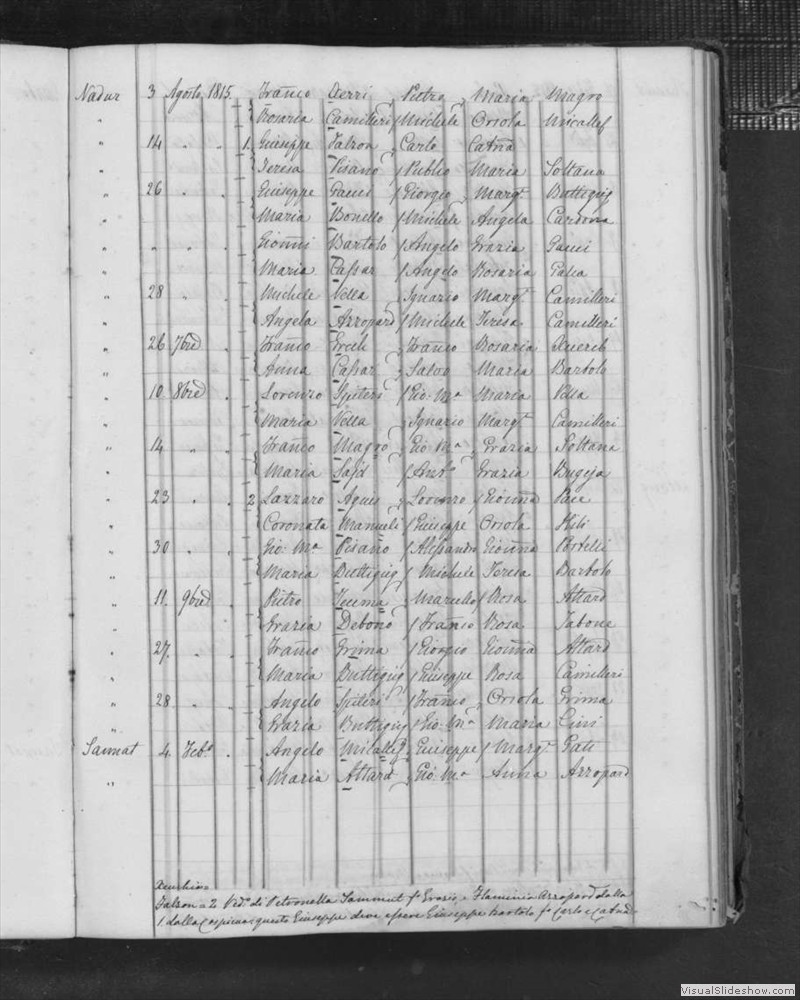 Nadur 3 Agosto 1815. Franco Xerri Pietro Maria Magro
" Rosaria Camilleri Michele Orsola Micallef
" 14 " " 1. Giuseppe Falzon Carlo Catna
" Teresa Pisano Publio Maria Soltana
" 26 " " Giuseppe Gauci Giorgio Margta Buttigieg
" Maria Bonello Michele Angela Cardona
" " " " Gionni Bartolo Angelo Grazia Gauci
" Maria Cassar Angelo Rosaria Galea
" 28 " " Michele Vella Ignazio Margta Camilleri
" Angela Azzopard Michele Teresa Camilleri
" 26 7bre " Franco Franco Rosaria Xuereb
" Anna Cassar Salvo Maria Bartolo
" 10 8bre " Lorenzo Spiteri Gio: Ma Maria Vella
" Maria Vella Ignazio Margta Camilleri
" 14 " " Franco Magro Gio: Ma Grazia Soltana
" Maria Said Grazia Bugeja
" 23 " " 2 Lazzaro Agius Lorenzo Gionna Pace
" Coronata Manueli Giuseppe Orsola
" 30 " " Gio: Ma Pisano Alessandro Gionna Portelli
" Maria Buttigieg Michele Teresa Bartolo
" 11. 9bre " Pietro Tecima Marcello Rosa Attard
" Grazia Debono Franco Rosa Tabone
" 27. " " Franco Grima Giorgio Gionna Attard
" Maria Buttigieg Giuseppe Rosa Camilleri
" 28 " " Angelo Spiteri Franco Orsola Grima
" Grazia Buttigieg Gio: Ma Maria Cini
Sannat 4. Febo " Angelo Micallef Giuseppe Margta
" Maria Attard Gio: Ma Anna Azzopard
Falzon = 2 Vedo di Petronella Sammut Flaminia Azzopard dalla
1. dalla questo Giuseppe deve essere Giuseppe Bartolo fo Carlo e Catna
VisualSlideshow.com